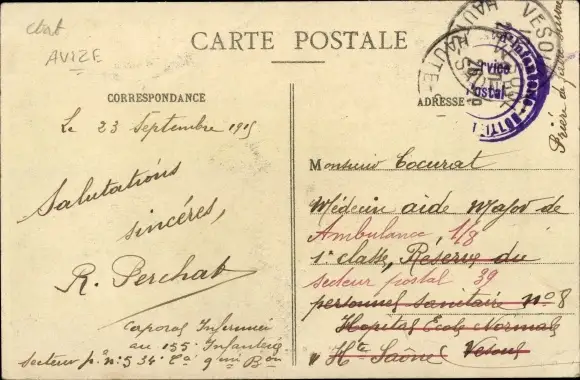 AVIZE
CARTE POSTALE
CORRESPONDANCE
ADRESSE
Le 23 Septembre 1915
Salutations
sincéres,
R. Perchat
Caporal Infirmier
au 155e Infanterie
secteur p. n° 5 34e Ca 9 Bon
VESOUL
HAUTE-
Service
Postal
Prière de faire suivre
Monsieur Cocurat
Médecin aide Major de
Ambulance 1/8
1e classe, Réserve du
secteur postal 39
personnel sanitaire n° 8
Hopital Ecole Normale
Hte Saône (Vesoul